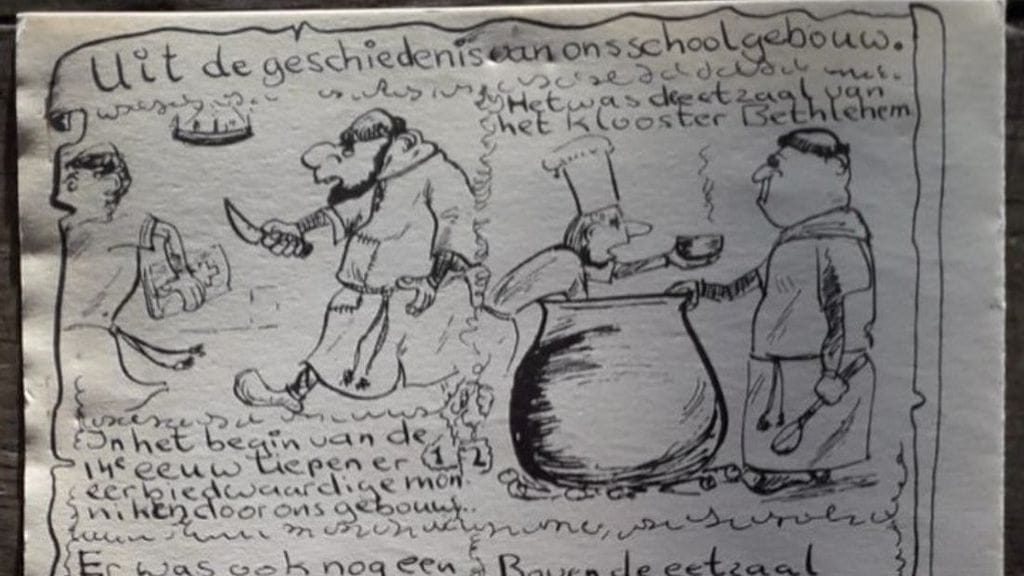 Uit de geschiedenis van ons schoolgebouw.
Het was de eetzaal van
het klooster Bethlehem
In het begin van de
eeuw liepen er
eerbiedwaardige mon
niken door ons gebouw..
1 2
Er was ook nog een
Boven de eetzaal